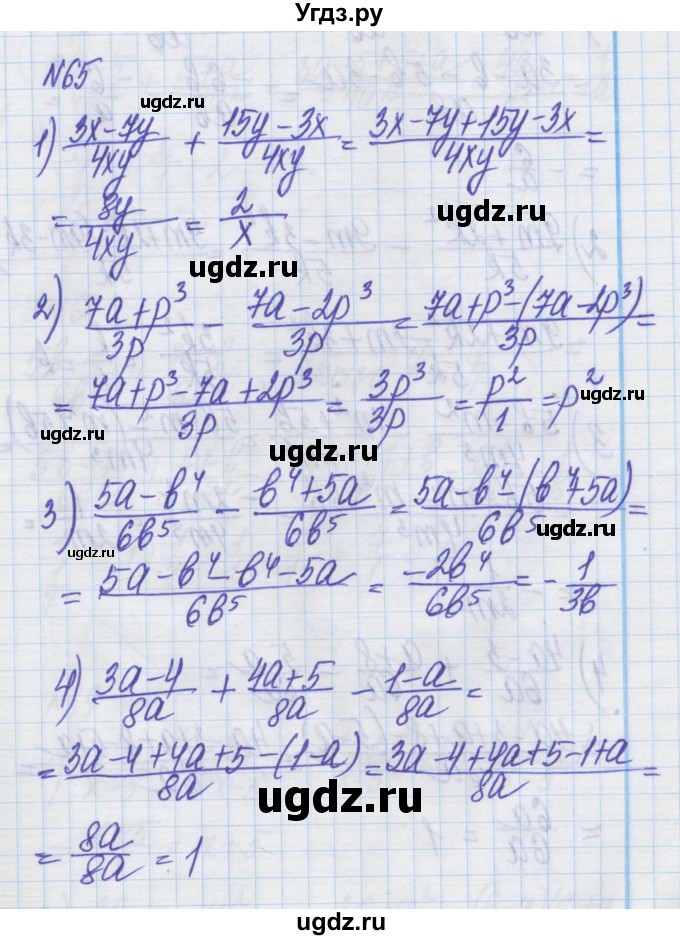 Угдз.ру
N65
ugdz.ru ugdz.ru
1) (3x-7y)/(4xy) + (15y-3x)/(4xy) = (3x-7y+15y-3x)/(4xy) =
ugdz.ru
= 8y/(4xy) = 2/x
ugdz.ru
2) (7a+p³)/(3p) - (7a-2p³)/(3p) = (7a+p³-(7a-2p³))/(3p) =
= (7a+p³-7a+2p³)/(3p) = 3p³/(3p) = p²/1 = p²
ugdz.ru
ugdz.ru ugdz.ru
3) (5a-b⁴)/(6b⁵) - (b⁴+5a)/(6b⁵) = (5a-b⁴-(b⁴+5a))/(6b⁵) =
ugdz.ru ugdz.ru
= (5a-b⁴-b⁴-5a)/(6b⁵) = -2b⁴/(6b⁵) = -1/(3b)
4) (3a-4)/(8a) + (4a+5)/(8a) - (1-a)/(8a) =
ugdz.ru
= (3a-4+4a+5-(1-a))/(8a) = (3a-4+4a+5-1+a)/(8a) =
ugdz.ru
= 8a/(8a) = 1
ugdz.ru
ugdz.ru ugdz.ru